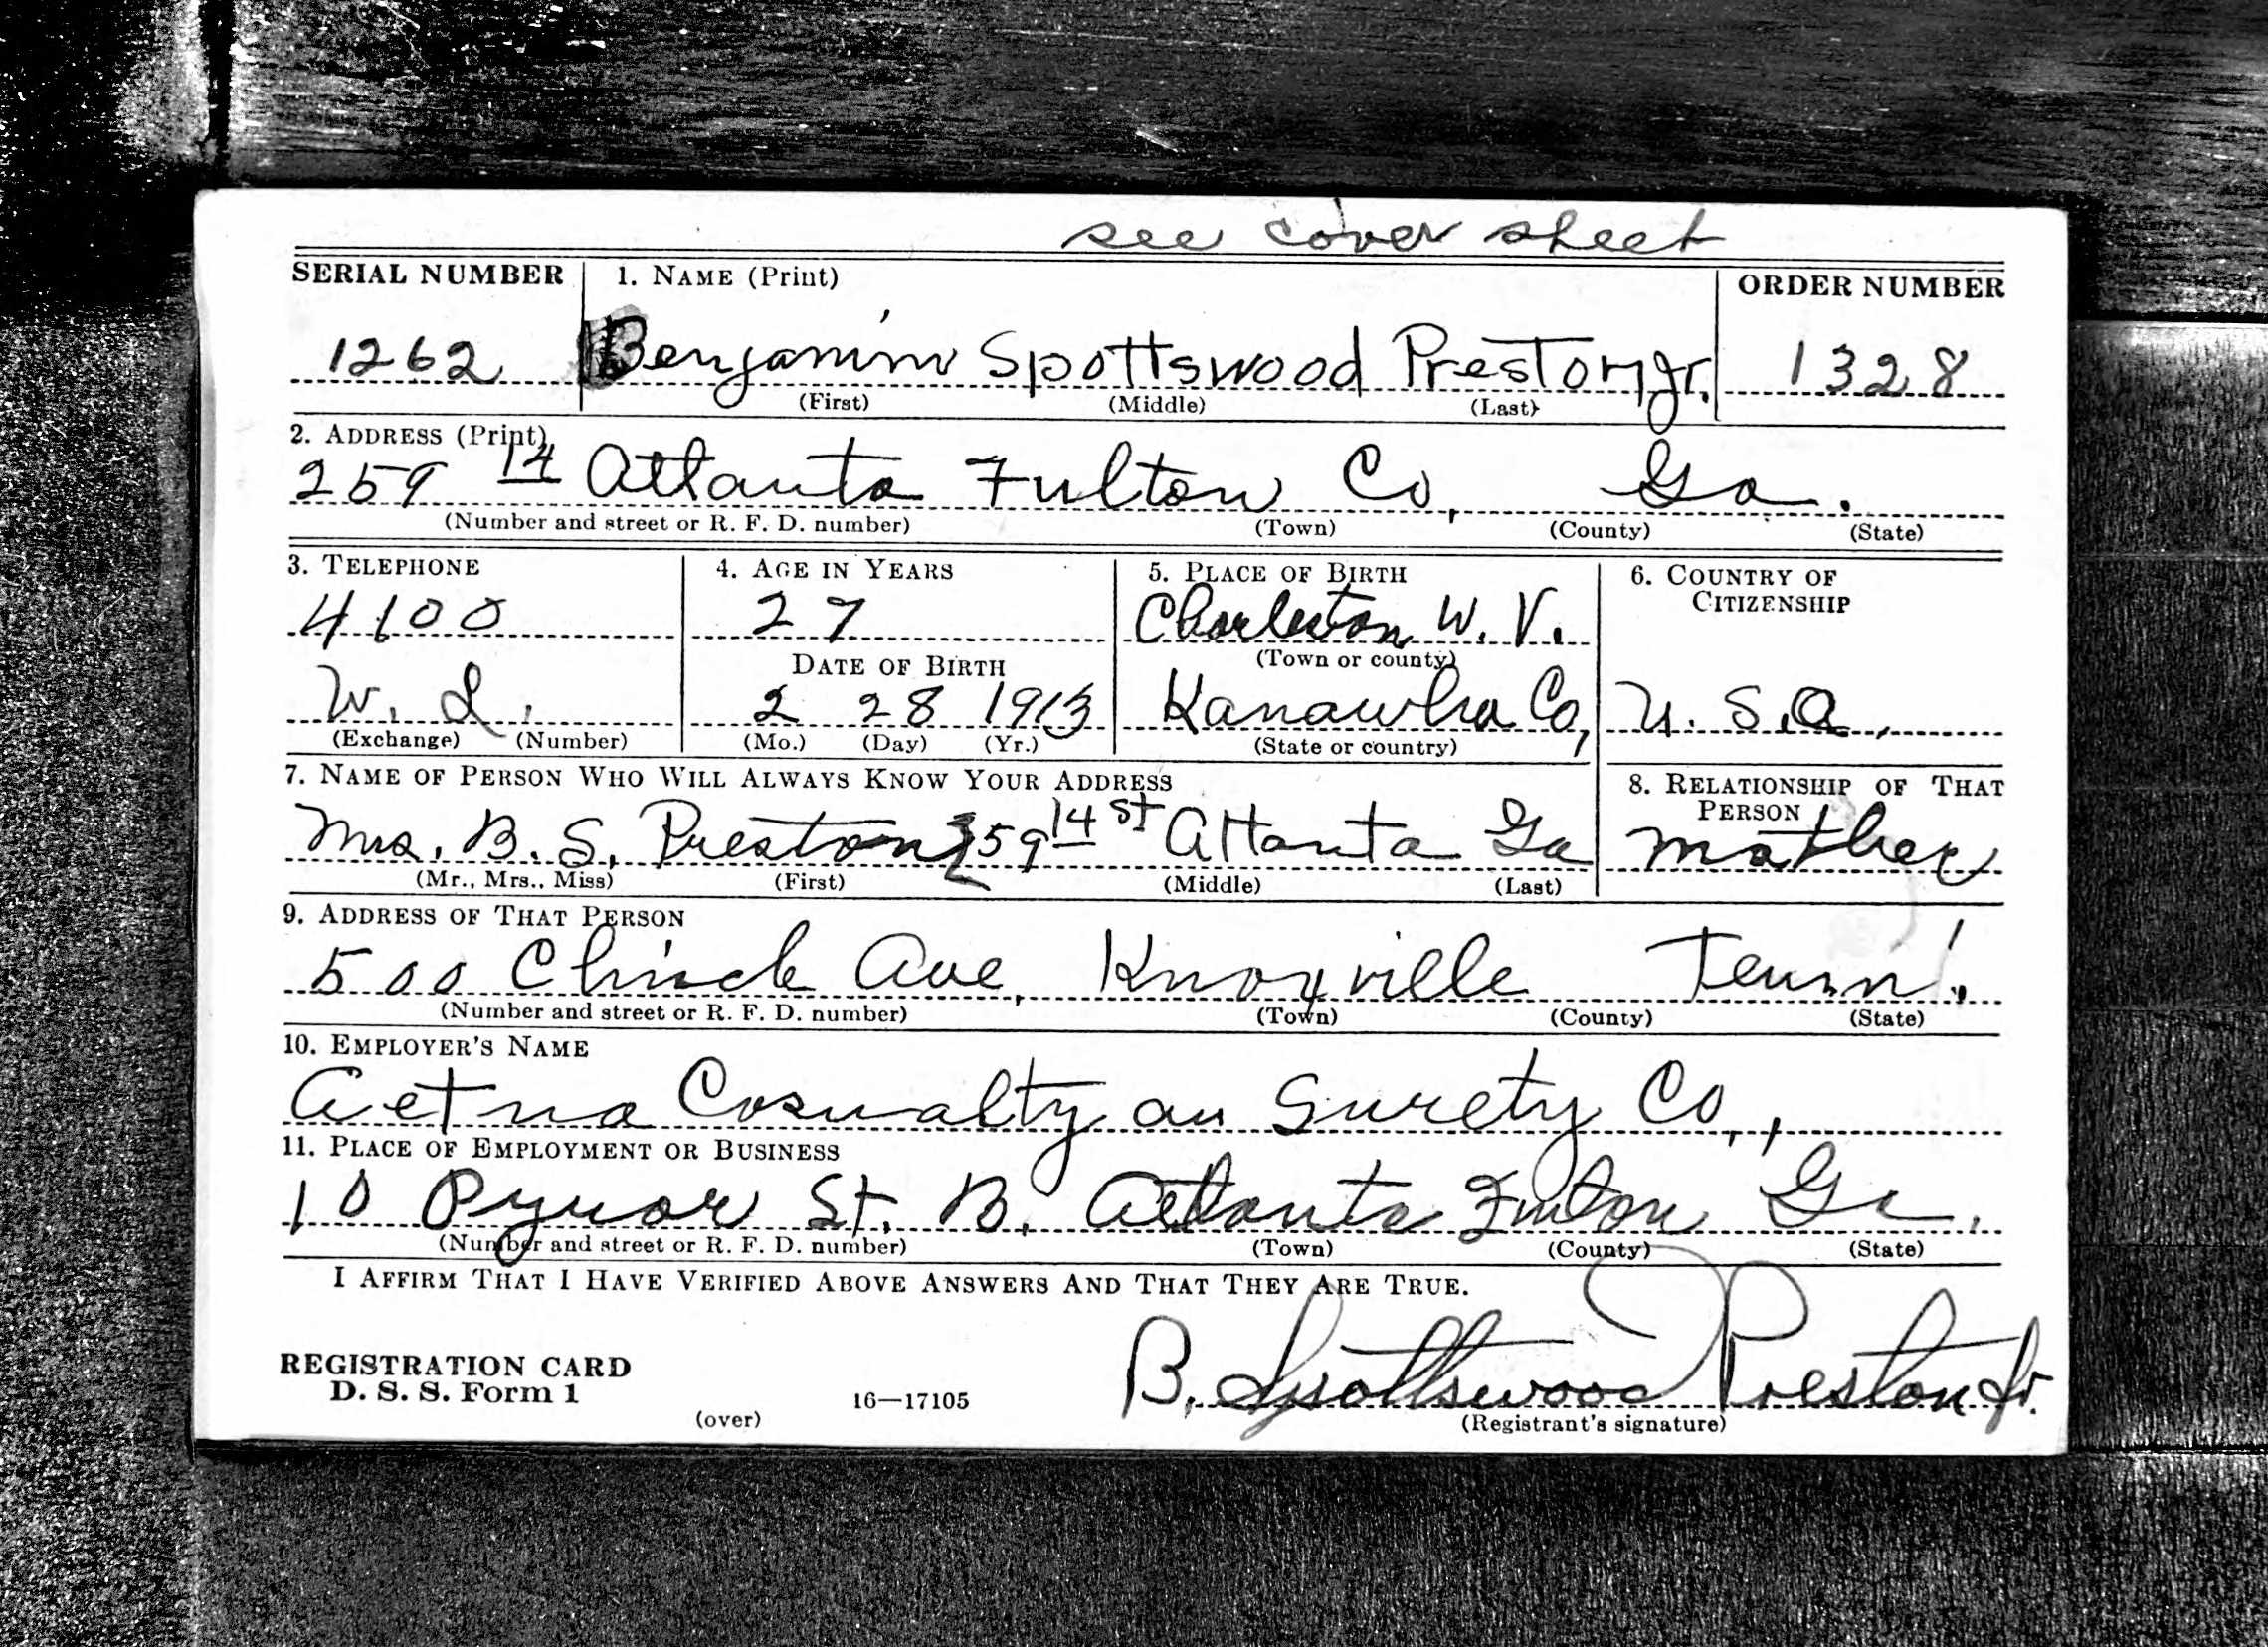 see cover sheet
SERIAL NUMBER 1. NAME (Print) ORDER NUMBER
1262 Benjamin Spottswood Preston Jr. 1328
(First) (Middle) (Last)
2. ADDRESS (Print)
259 14 Atlanta Fulton Co, Ga.
(Number and street or R. F. D. number) (Town) (County) (State)
3. TELEPHONE 4. AGE IN YEARS 5. PLACE OF BIRTH 6. COUNTRY OF CITIZENSHIP
4100 27 Charleston W. V.
DATE OF BIRTH (Town or county)
W. 2 28 1913 Kanawha Co, U. S. A.
(Exchange) (Number) (Mo.) (Day) (Yr.) (State or country)
7. NAME OF PERSON WHO WILL ALWAYS KNOW YOUR ADDRESS 8. RELATIONSHIP OF THAT PERSON
Mrs. B. S. Preston 259 14 St Atlanta Ga Mother
(Mr., Mrs., Miss) (First) (Middle) (Last)
9. ADDRESS OF THAT PERSON
500 Ave, Knoxville Tenn.
(Number and street or R. F. D. number) (Town) (County) (State)
10. EMPLOYER'S NAME
Aetna Casualty an Surety Co.,
11. PLACE OF EMPLOYMENT OR BUSINESS
10 Pynor St. B. Atlanta Fulton Ga.
(Number and street or R. F. D. number) (Town) (County) (State)
I AFFIRM THAT I HAVE VERIFIED ABOVE ANSWERS AND THAT THEY ARE TRUE.
REGISTRATION CARD
D. S. S. Form 1 16—17105 B. Spottswood Preston Jr.
(over) (Registrant's signature)